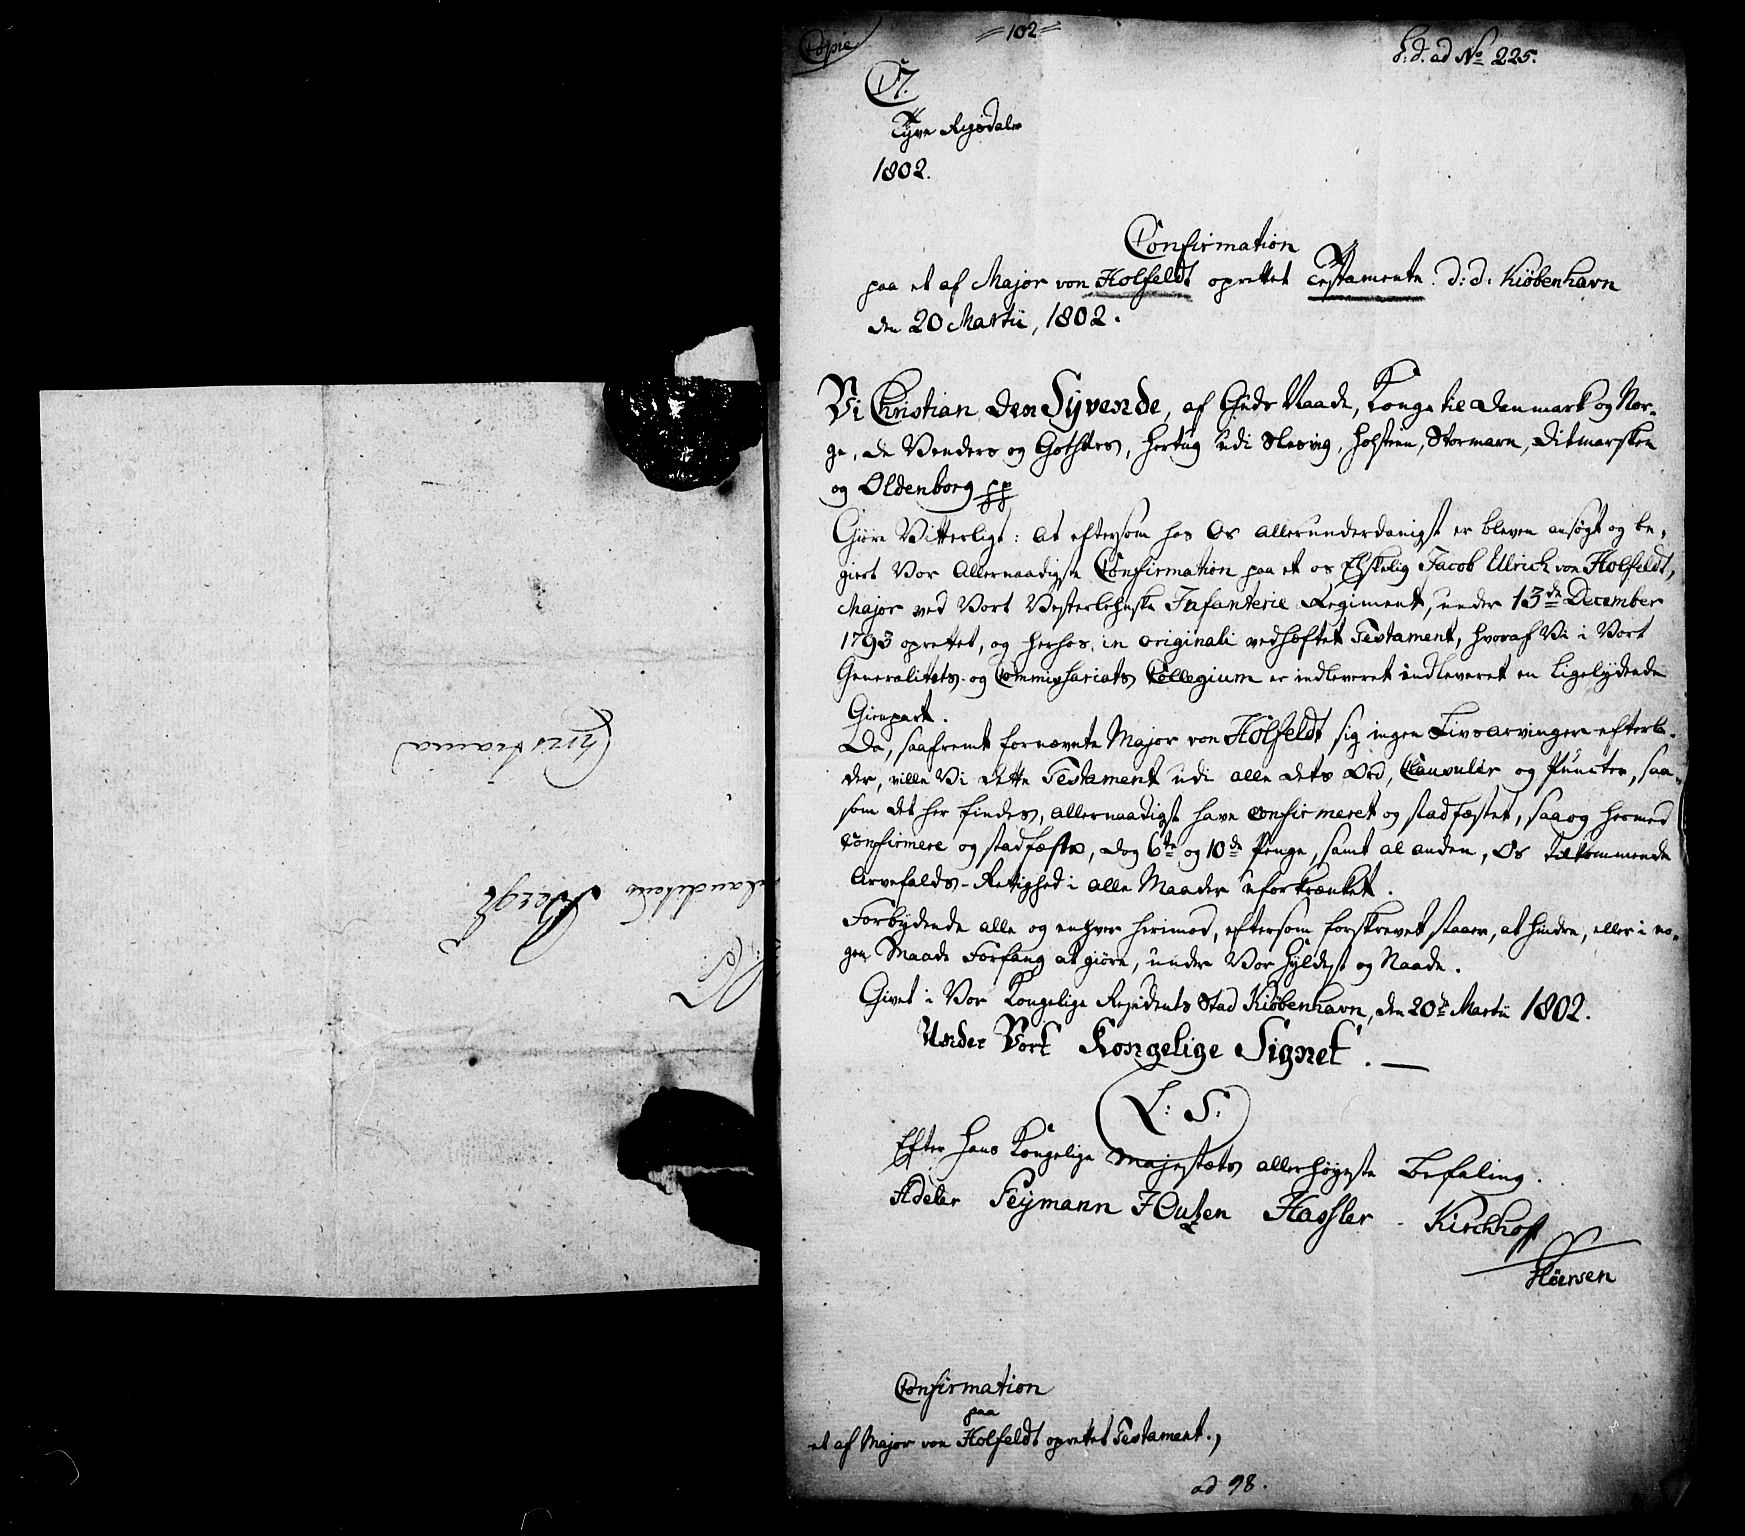 Copie
=102=
L. d. ad No 225.
C7.
Tyve Rigsdaler
1802.
Confirmation
paa et af Major von Holfeldt oprettet Testamente. d: d. Kiöbenhavn
den 20 Martii, 1802.
Vi Christian den Syvende, af Guds Naade, Konge til Danmark og Nor-
ge, de Venders og Gothers, Hertug udi Slesvig, Holsteen, Stormarn, Ditmarsken
og Oldenborg pp
Giöre Vitterligt: at eftersom hos Os allerunderdanigst er bleven ansøgt og be-
giert Vor Allernaadigste Confirmation paa et os Elskelig Jacob Ulrich von Holfeldt,
Major ved Vort Vesterlehnske Infanterie Regiment, under 13de December
1793 oprettet, og herhos in originali vedhæftet Testament, hvoraf Vi i Vort
Generalitets- og Commissariats Collegium er indleveret indleveret en ligelydende
Gienpart.
Da, saafremt fornævnte Major von Holfeldt sig ingen Livsarvinger efterla-
der, ville Vi dette Testament udi alle dets Ord, Clausuler og Puncter, saa-
som det her findes, allernaadigst have confirmeret og stadfæstet, saa og hermed
confirmere og stadfæste, dog 6te og 10de Penge, samt al anden, Os tilkommende
Arvefalds-Rettighed i alle Maader uforkrænket.
Forbydende alle og enhver herimod, eftersom forskrevet staaer, at hindre, eller i no-
gen Maade Forfang at giöre, under Vor Hyldest og Naade.
Givet i Vor Kongelige Residents Stad Kiöbenhavn, den 20de Martii 1802.
Under Vort Kongelige Signet.
L: S:
Efter Hans Kongelige Majestæts allerhøyeste Befaling.
Adeler Feymann Hassler - Kirchhoff
Confirmation
paa
et af Major von Holfeldt oprettet Testament.,
ad 98.
Bergh
Christiania